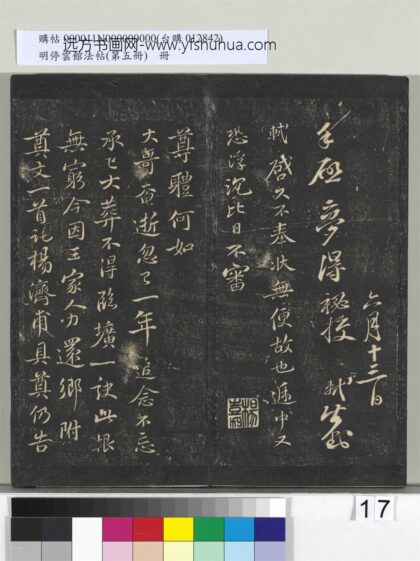 購帖 000011N000000000(台購 012842)
远方书画网-www.yfshuhua.com
明停雲館法帖(第五冊) 冊
六月十三日
手啟夢得秘授 軾
軾啓久不奉狀無便故也遞中又
恐浮沉比日不審
尊體何如
大哥奄逝忽〻一年追念不忘
承已大葬不得臨壙一訣此恨
無窮今因王家人力還鄉附
奠文一首託楊濟甫具奠仍告
17